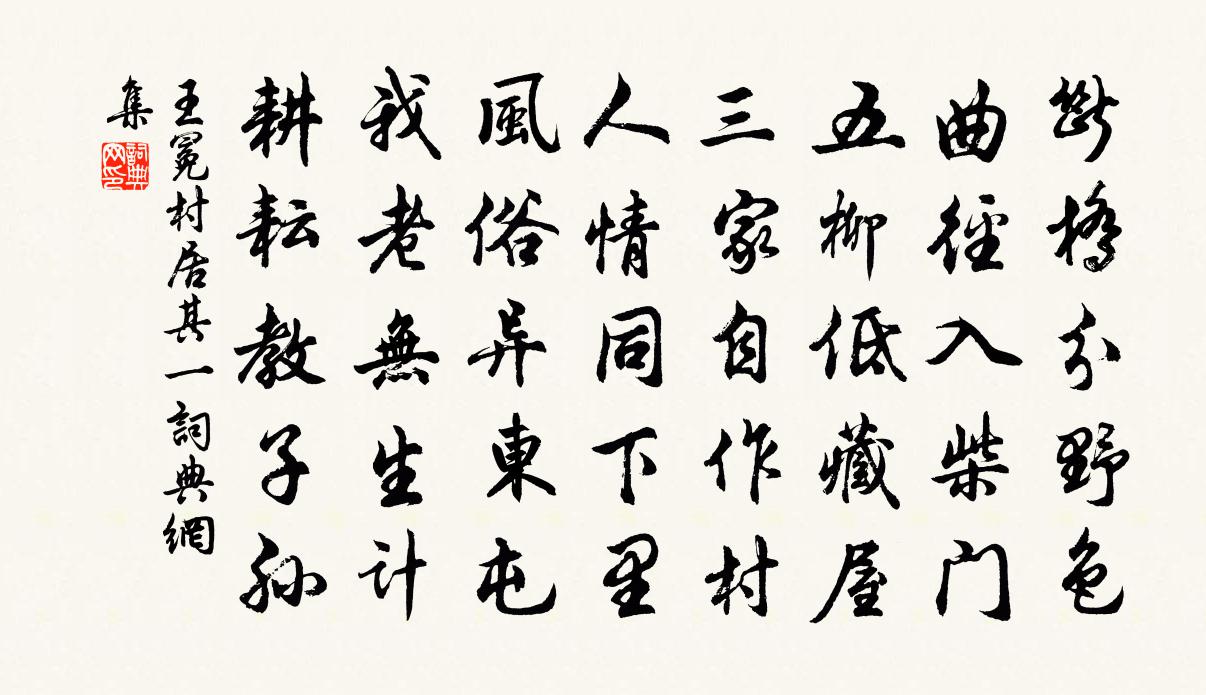 斷橋分野色
曲徑入柴门
五柳低藏屋
三家自作村
人情同下里
風俗异東屯
我老無生計
耕耘教子孫
王冕村居其一詞典網
集
詞典
网印